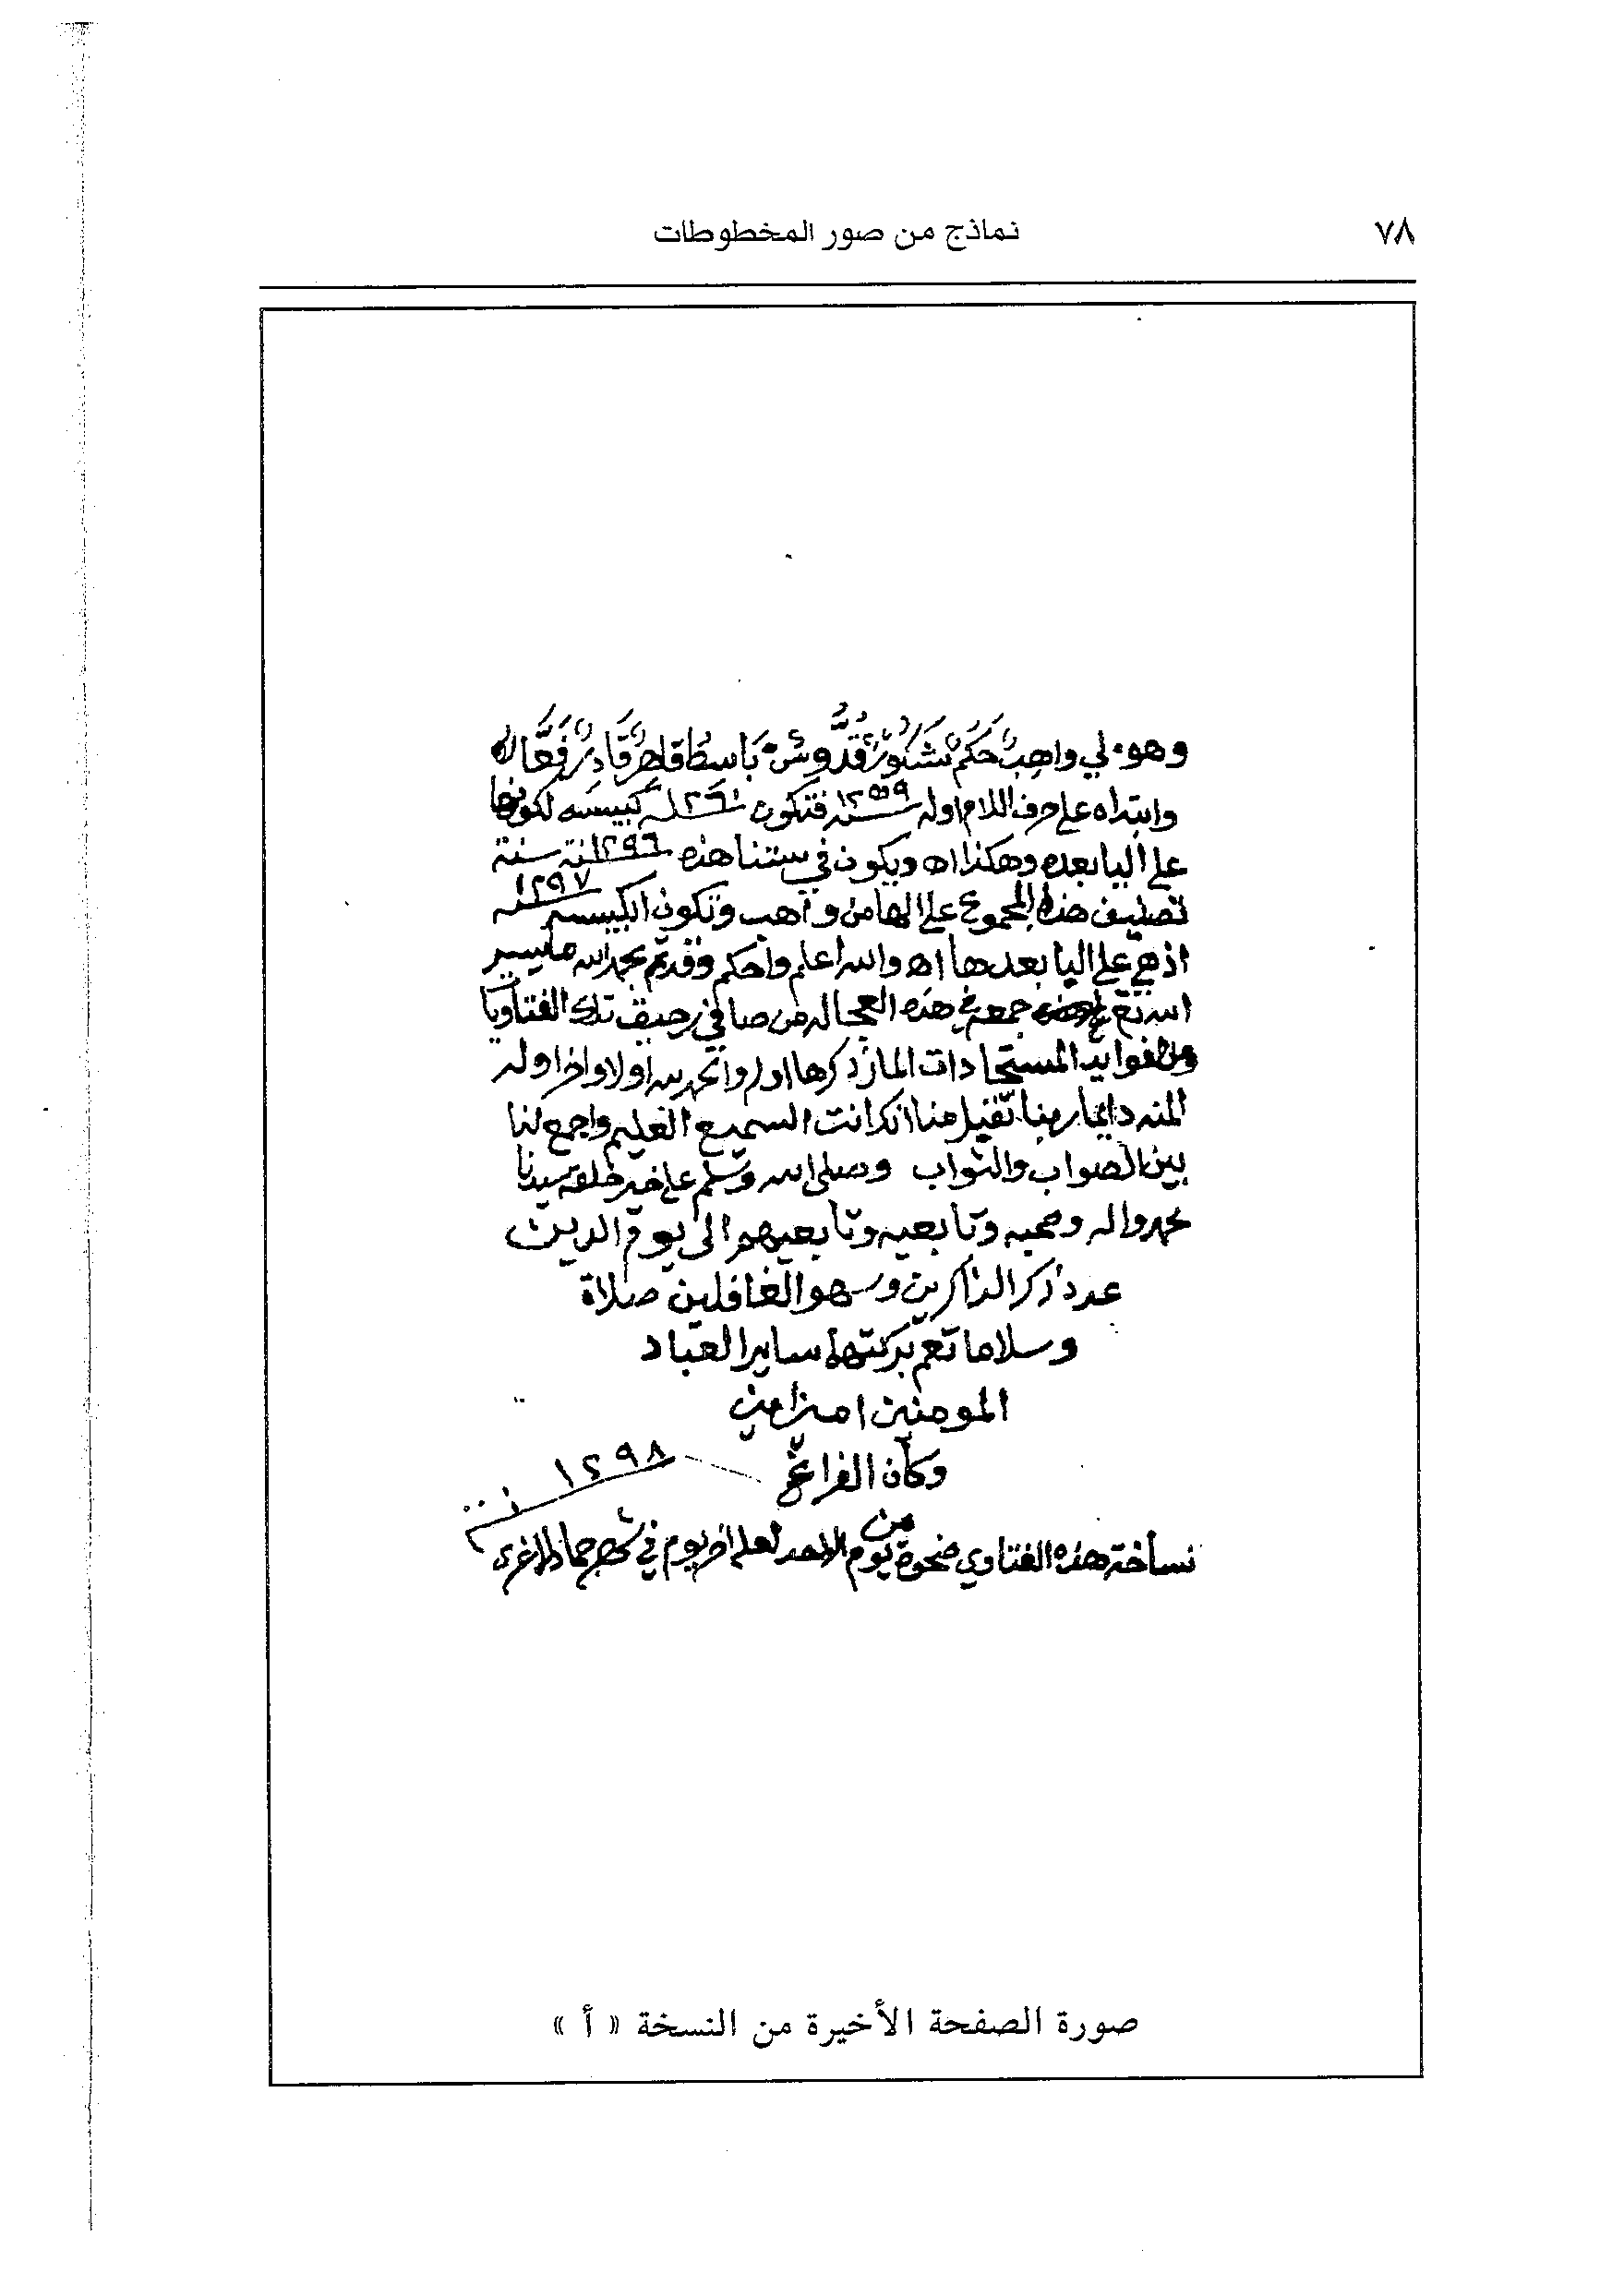 ٧٨
نماذج من صور المخطوطات
وهو لي واهب حكم شكور قدوس باسط قاهر قادر فعال
وابتداه على حرف اللام اوله سنة ١٢٥٩ فتكون سنة ١٢٦١ كبيسه لكونها
على اليا بعده وهكذا اه ويكون في سنتنا هذه سنة ١٢٩٦ سنة
تصنيف هذا المجموع على الها من واهب وتكون الكبيسه سنة ١٢٩٧
اذ هي على اليا بعدها اه والله اعلم واحكم وقد تم بحمد الله ما يسر
الله تع جمعه في هذه العجاله من صافي رحيق تلك الفتاويا
والفوايد المستجادات المار ذكرها اول والحمد لله اولا واخرا وله
المنه دايما ربنا تقبل منا انك انت السميع العليم واجمع لنا
بين الصواب والثواب وصلى الله وسلم على خير خلقه سيدنا
محمد واله وصحبه وتابعيه وتابعيهم الى يوم الدين
عدد ذكر الذاكرين وسهو الغافلين صلاة
وسلاما تعم بركتهما ساير العباد
المومنين امين امين
وكان الفراغ
من ١٢٩٨
نساخة هذه الفتاوي ضحوة يوم الاحد لعله اخر يوم في شهر جماد الاخرى
صورة الصفحة الأخيرة من النسخة « أ »